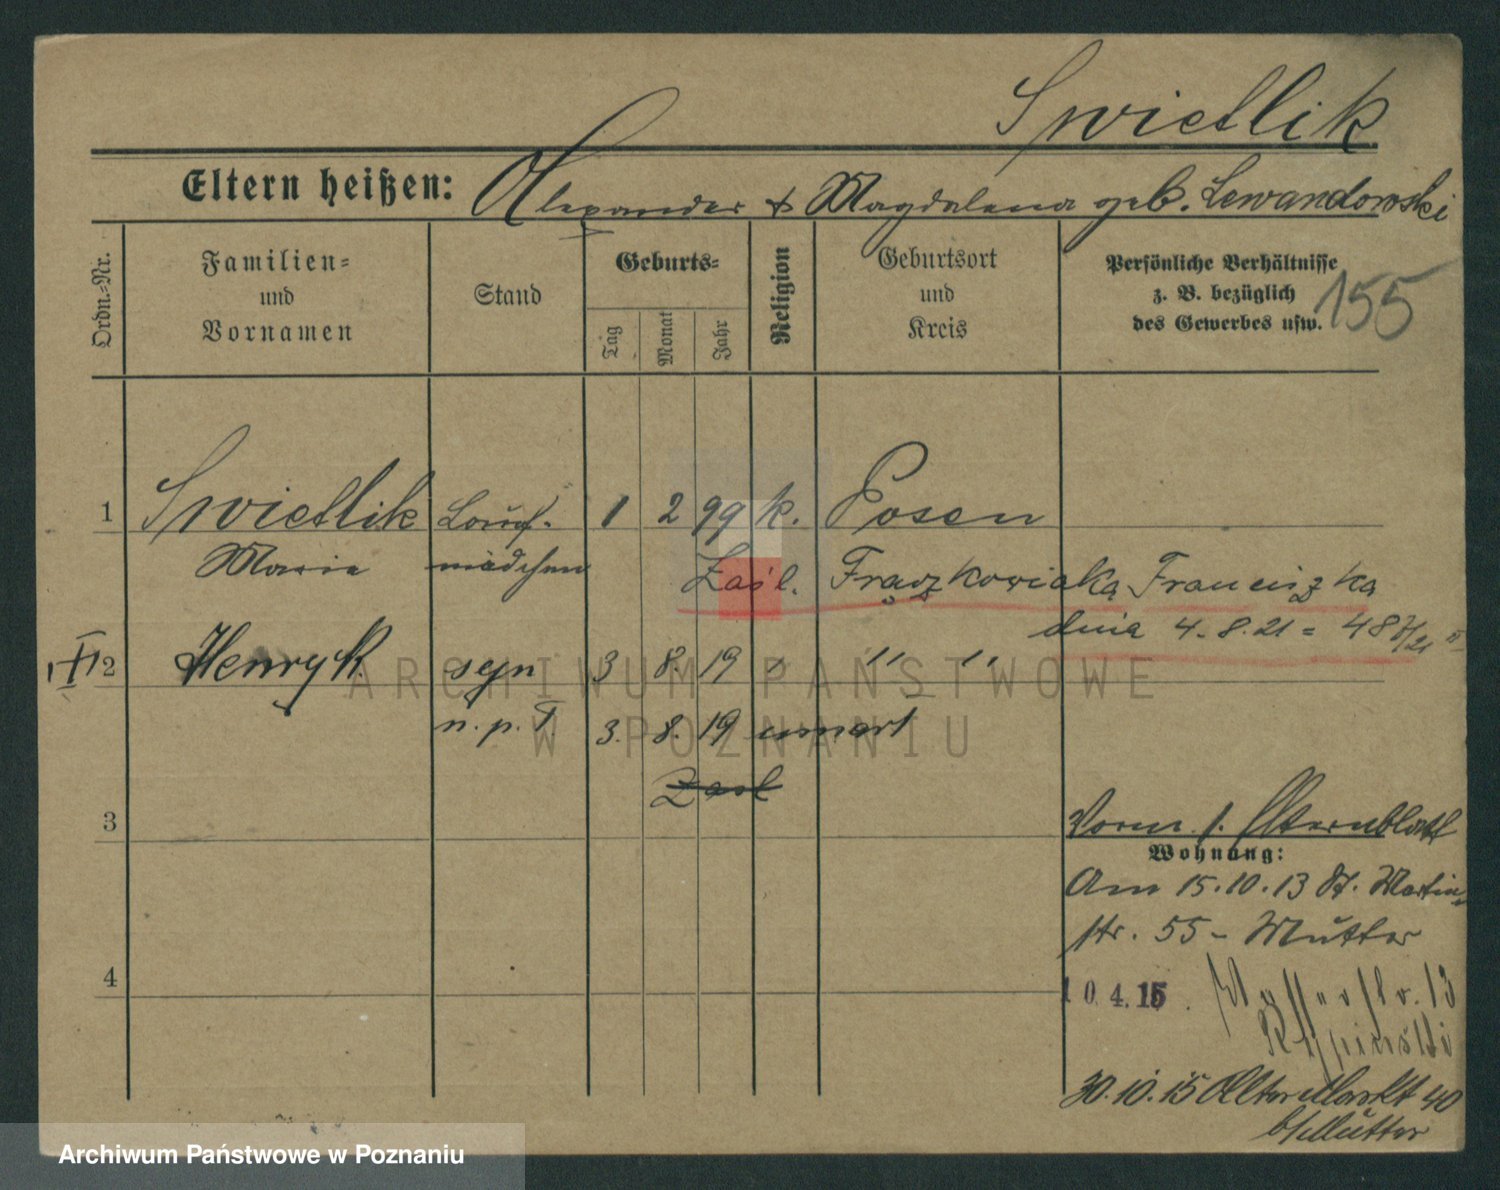 Swietlik
Eltern heißen: Alexander & Magdalena geb. Lewandowski
Ordn.-Nr.
Familien-
und
Vornamen
Stand
Geburts-
Tag
Monat
Jahr
Religion
Geburtsort
und
Kreis
Persönliche Verhältnisse
z. B. bezüglich
des Gewerbes usw.
155
1 Swietlik Lauf- 1 2 99 k. Posen
Marie mädchen Zaśl. Frączkowiaka Franciszka
dnia 4. 8. 21 = 487/21
2 Henryk syn 3 8. 19 " "
n. p. T. 3. 8. 19 umarł
Zaśl
3
Vorm. s. Elternblatt
Wohnung:
Am 15.10.13 St. Martin-
str. 55 - Mutter
4
10.4.15. 13
30.10.15 Alter Markt 40
b/Mutter
ARCHIWUM PAŃSTWOWE
W POZNANIU
Archiwum Państwowe w Poznaniu